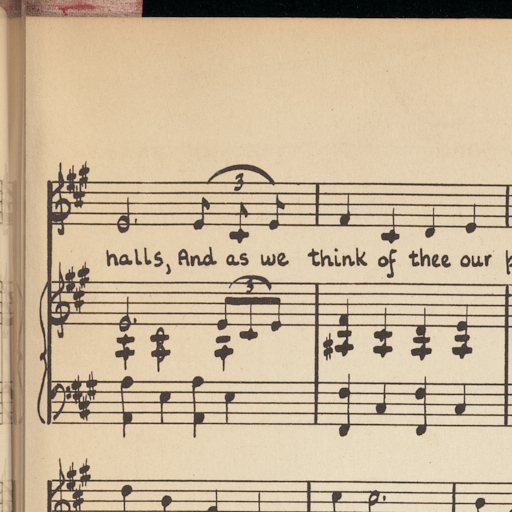 3
halls, And as we think of thee our
3